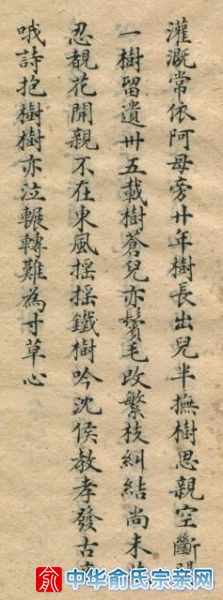 灌溉常依阿母旁廿年樹長出兒半撫樹思親空斷
一樹留遺卅五載樹蒼兒亦鬢毛改繁枝糾結尚未
忍靚花開親不在東風搖搖鐵樹吟沈侯教孝發古
哦詩抱樹樹亦泣輾轉難為寸草心
俞 中华俞氏宗亲网